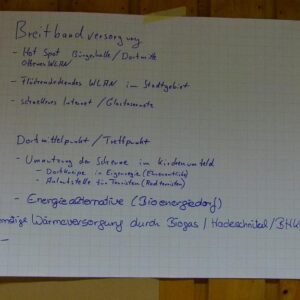 Breitbandversorgung
- Hot Spot Bürgerhalle / Dorfmitte
offenes WLAN
- Flächendeckendes WLAN im Stadtgebiet
- schnelleres Internet / Glasfasernetz
Dorfmittelpunkt / Treffpunkt
- Umnutzung der Scheune im Kirchenumfeld
- Dorfkneipe in Eigenregie (Ehrenamtliche)
- Anlaufstelle für Touristen (Radtouristen)
- Energiealternative (Bioenergiedorf)
Wärmeversorgung durch Biogas / Hackschnitzel / BHKW
-